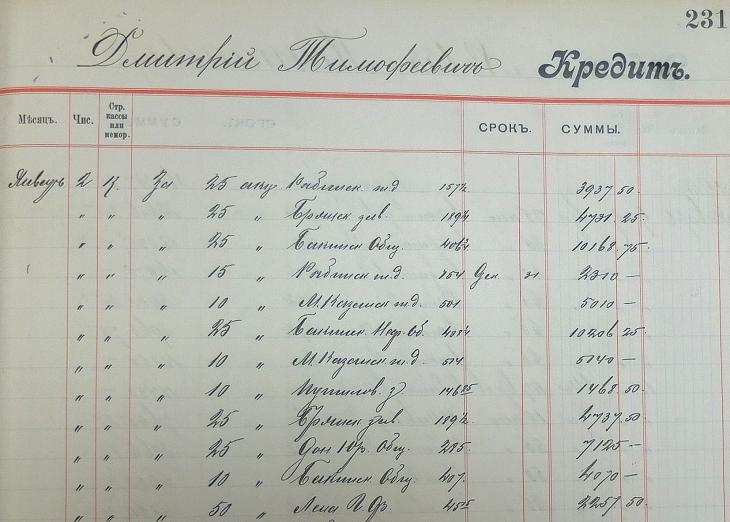 231
Дмитрій Тимофеевичъ Кредитъ.
Мѣсяцъ. Чис. Стр. кассы или мемор. СРОКЪ. СУММЫ.
Январь 2 К. За 25 акц Рыбинск. жд 157½ 3937 50.
" " 25 " Брянск. зав. 189¼ 4731. 25
" " 25 " Бакинск Общ. 406¾ 10168. 75
" " 15 " Рыбинск. ж.д. 154 Дек. 31. 2310 —
" " 10 " М. Казанск ж.д. 501. 5010 —
" " 25 " Бакинск. Неф. Об. 408¼ 10206 25.
" " 10 " М. Казанск ж.д 504. 5040 —
" " 10 " Путилов. з 146 85 1468. 50.
" " 25 " Брянск зав. 189½ 4737. 50.
" " 25 " Дон Юр. Общ. 285. 7125 —
" " 10 " Бакинск Общ. 407. 4070 —
" " 50 " Лена 45 15 2257. 50.